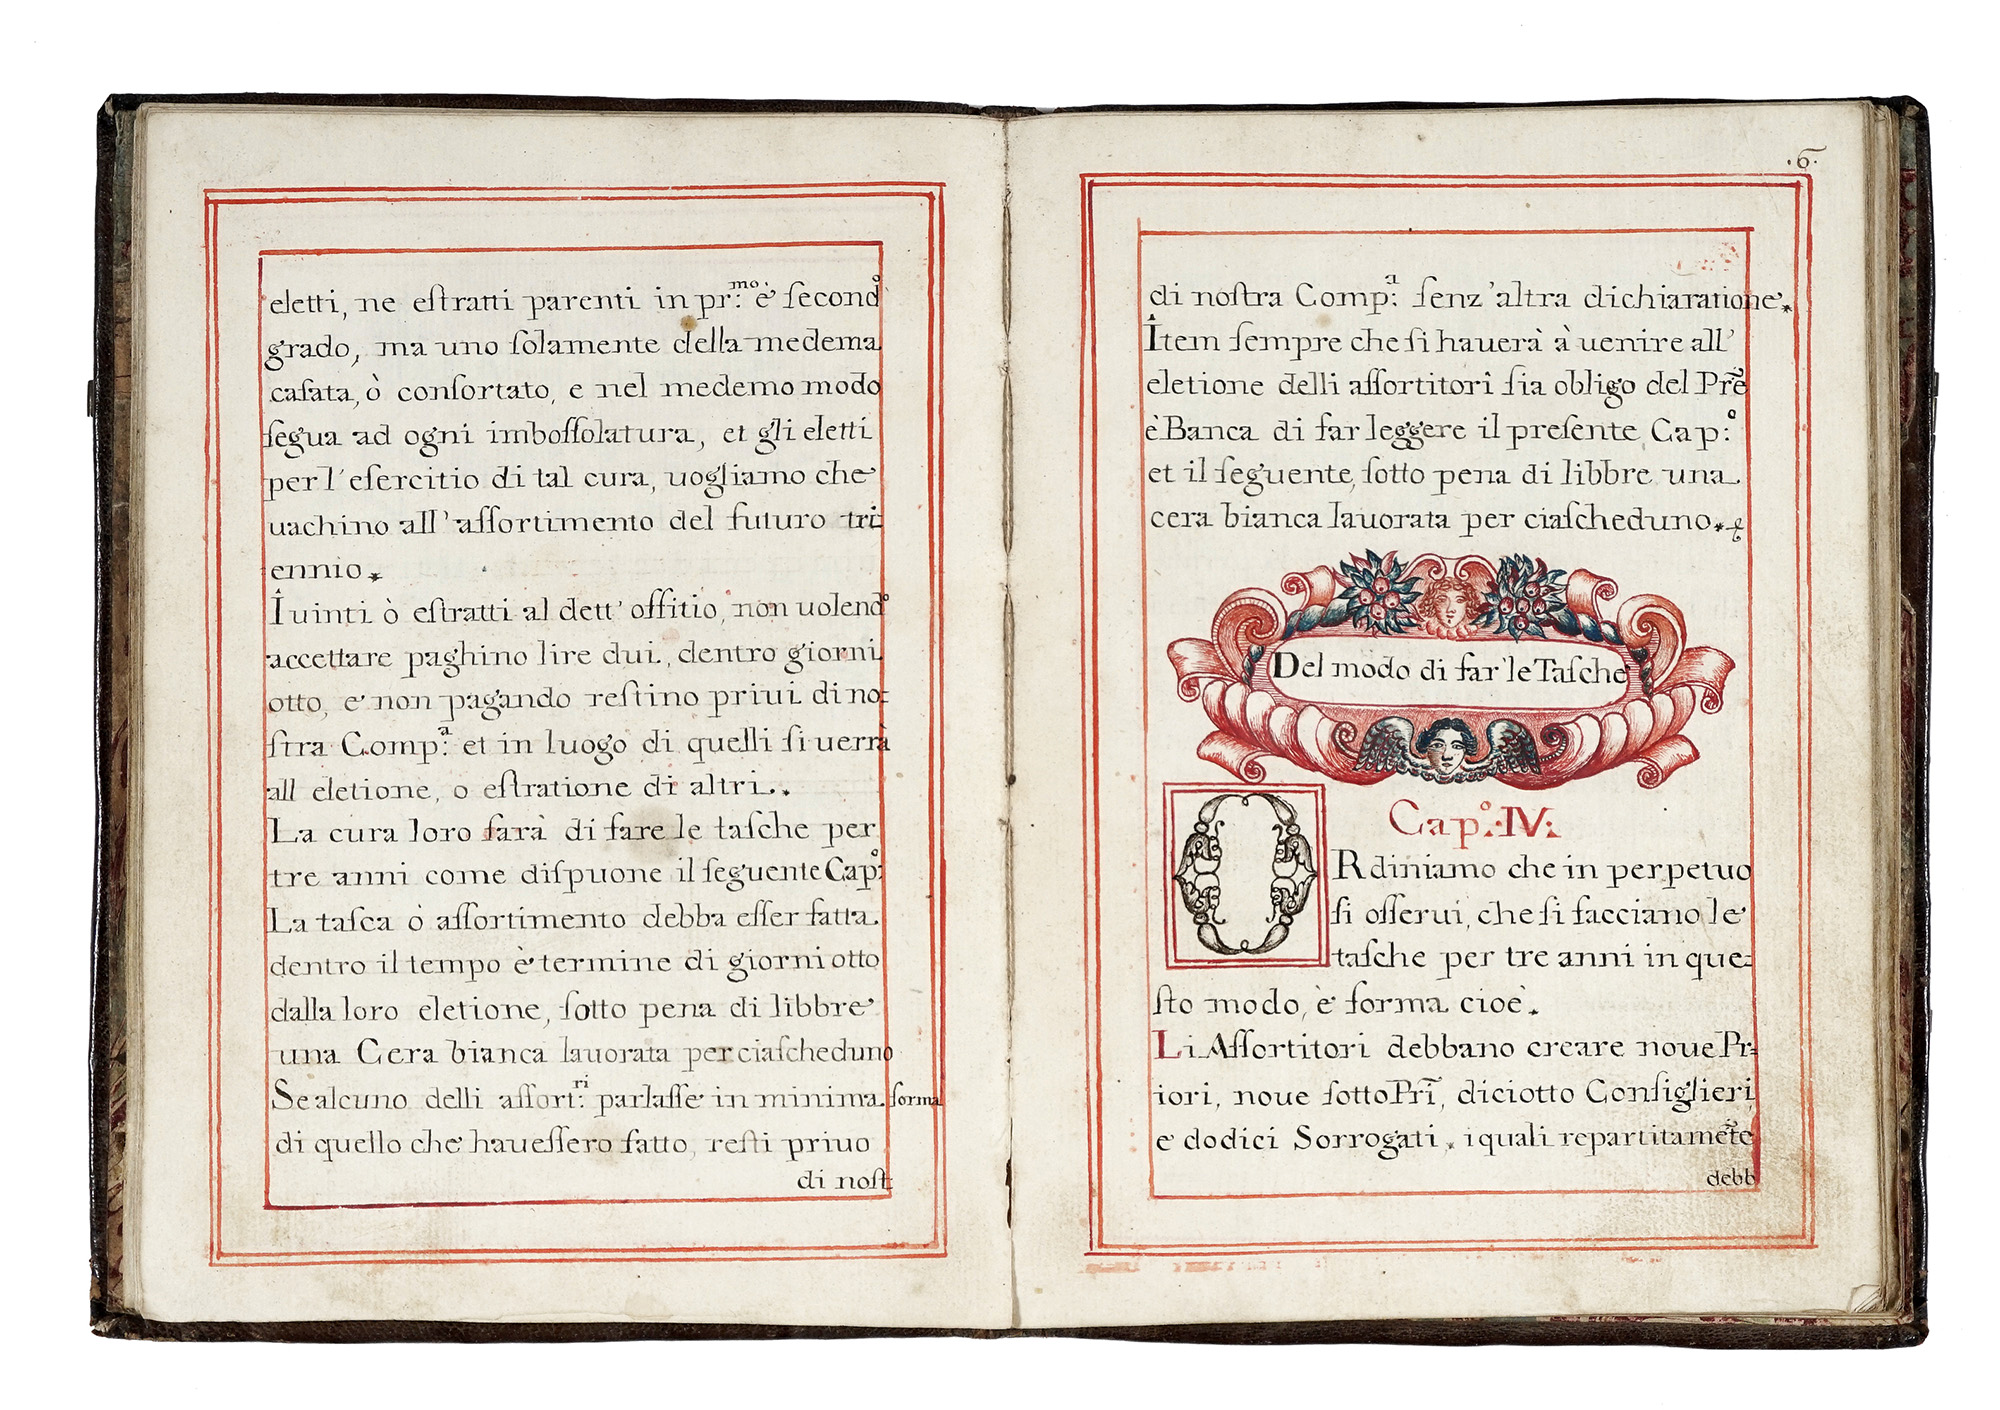 eletti, ne eſtratti parenti in pr:ᵐᵒ è ſecondº
grado, ma uno ſolamente della medema
caſata, ò conſortato, e nel medemo modo
ſegua ad ogni imboſſolatura, et gli eletti
per l'eſercitio di tal cura, uogliamo che
uachino all'aſſortimento del futuro tri:
ennio.
I uinti ò eſtratti al dett' offitio, non uolendº
accettare paghino lire dui, dentro giorni
otto, e non pagando reſtino priui di no:
ſtra Comp:ᵃ et in luogo di quelli ſi uerrà
all eletione, o eſtratione di altri.
La cura loro farà di fare le taſche per
tre anni come diſpuone il ſeguente Cap:º
La taſca ò aſſortimento debba eſſer fatta
dentro il tempo è termine di giorni otto
dalla loro eletione, ſotto pena di libbre
una Cera bianca lauorata per ciaſcheduno
Se alcuno delli aſſort:ʳⁱ parlaſſe in minima forma
di quello che haueſſero fatto, reſti priuo
di noſt:
.6.
di noſtra Comp:ᵃ ſenz'altra dichiaratione.
Item ſempre che ſi hauerà à uenire all'
eletione delli aſſortitori ſia obligo del Prẽ
è Banca di far leggere il preſente Cap:º
et il ſeguente, ſotto pena di libbre una
cera bianca lauorata per ciaſcheduno.
Del modo di far' le Taſche
Cap:º IV:
ORdiniamo che in perpetuo
ſi oſſerui, che ſi facciano le
taſche per tre anni in que=
ſto modo, è forma cioè.
Li Aſſortitori debbano creare noue Pr=
iori, noue ſotto Prĩ, diciotto Conſiglieri,
e dodici Sorrogati, i quali repartitamẽte
debb